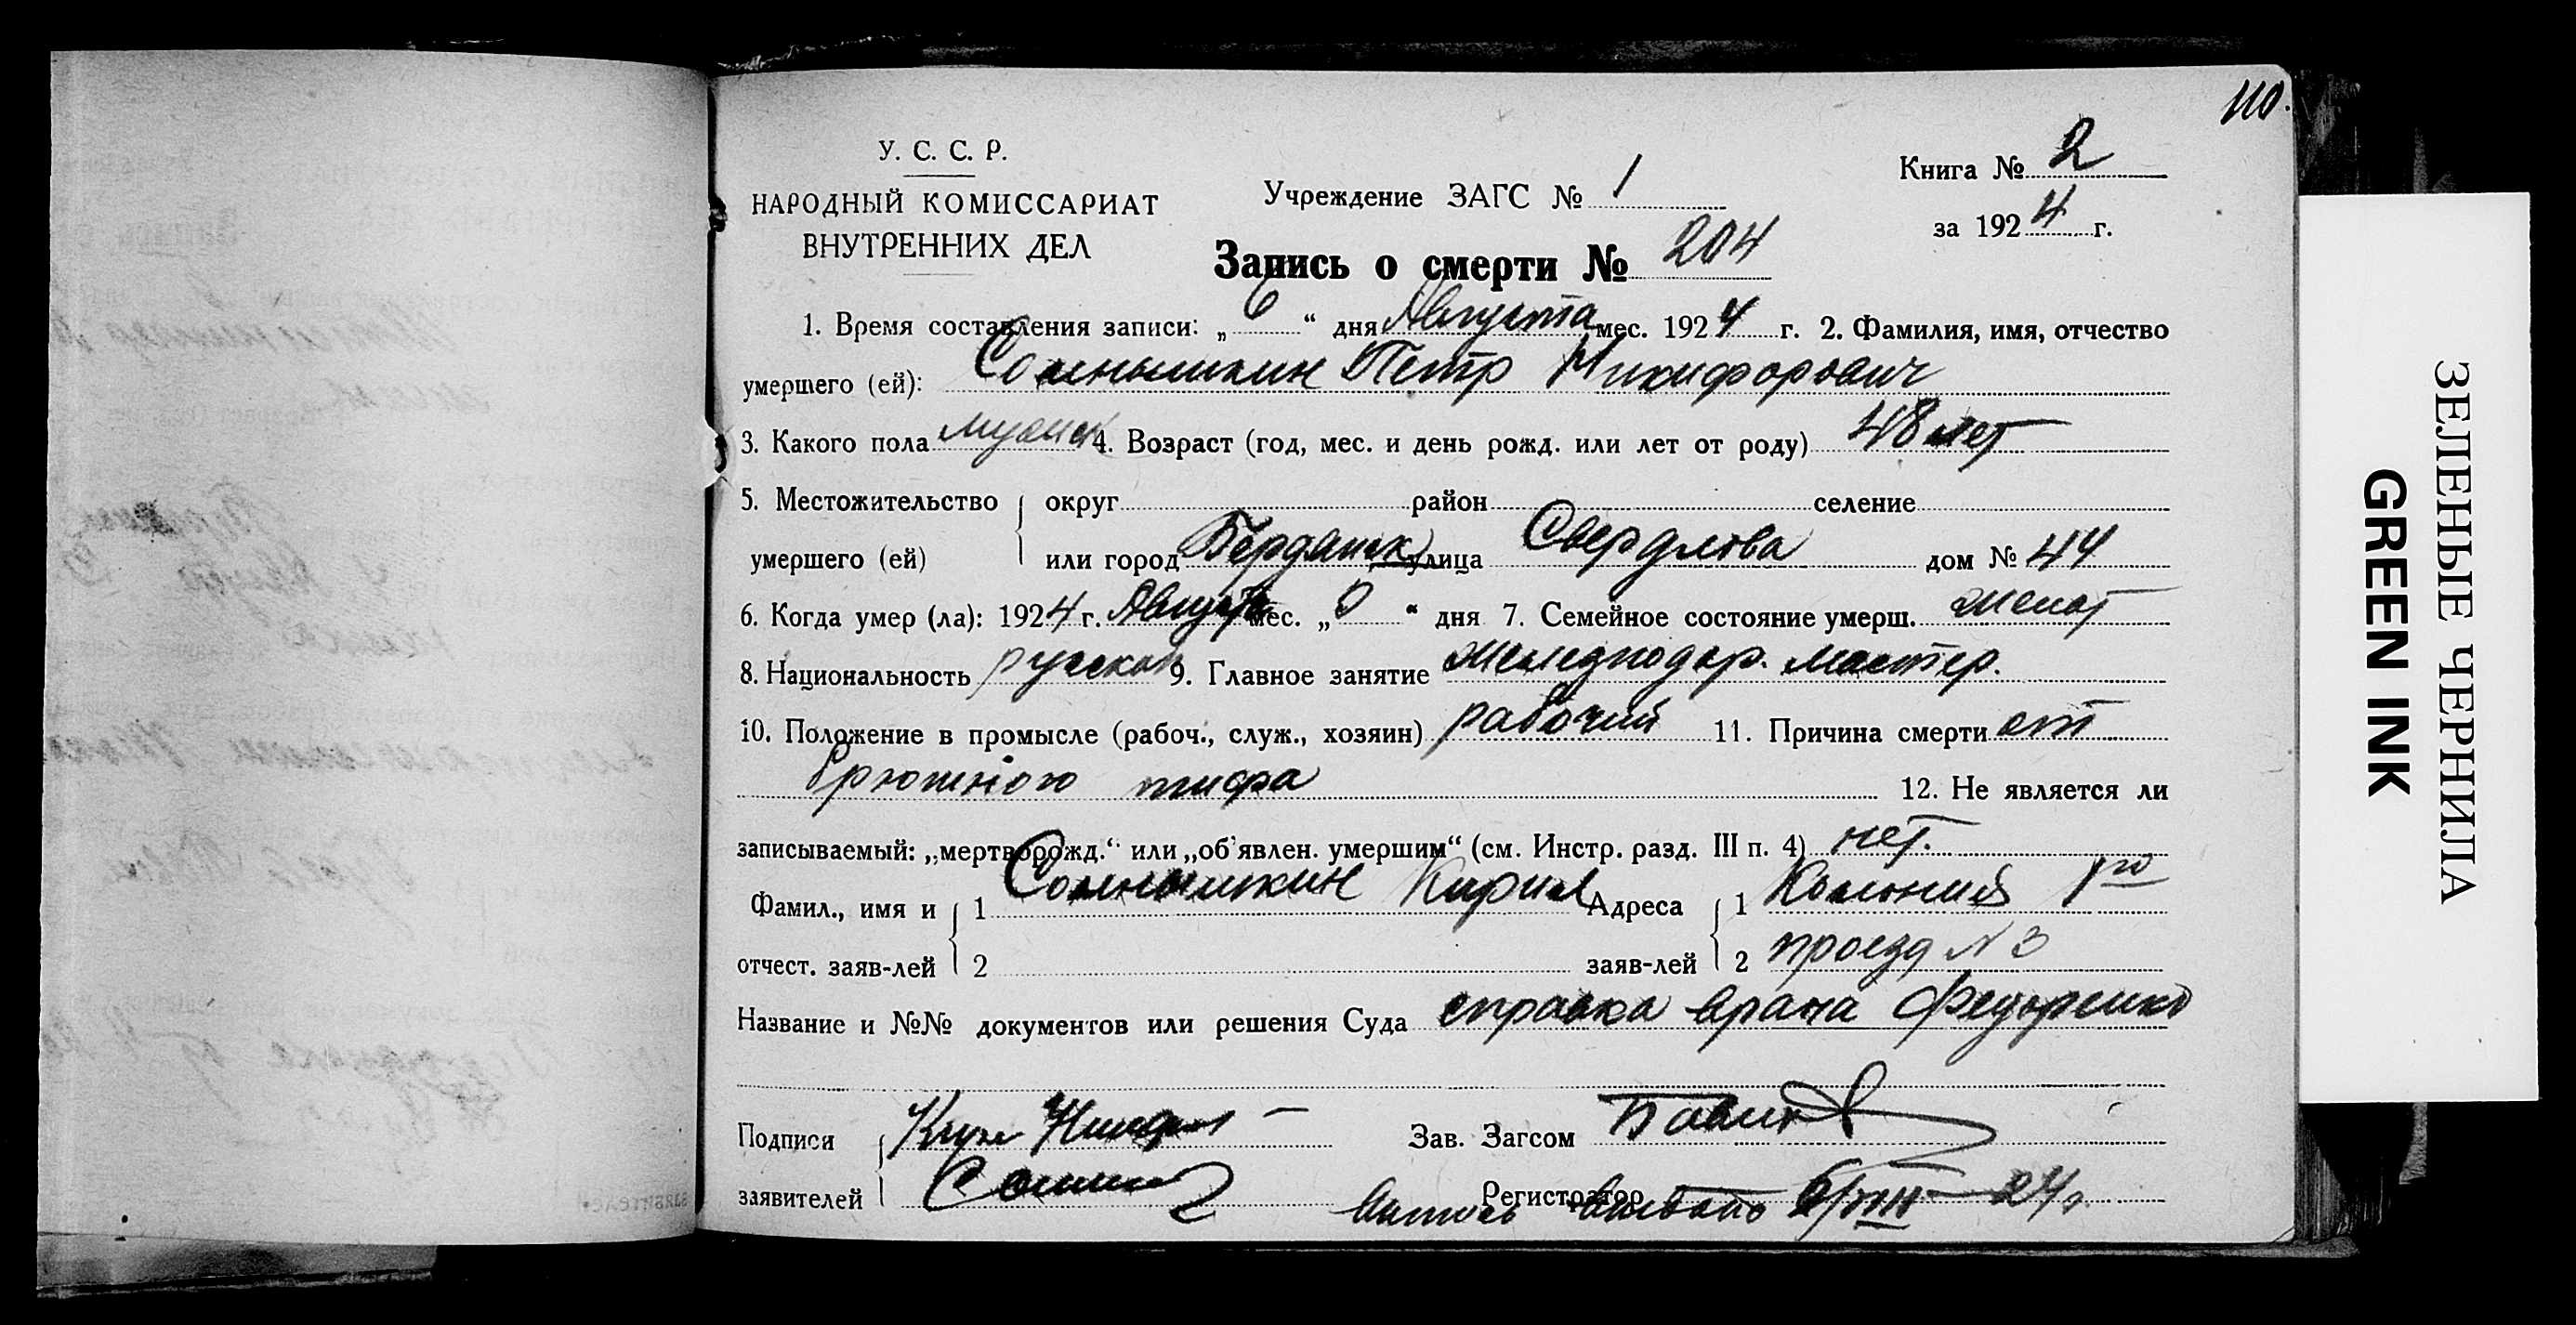 110.
У. С. С. Р.
НАРОДНЫЙ КОМИССАРИАТ
ВНУТРЕННИХ ДЕЛ
Учреждение ЗАГС № 1
Книга № 2
за 1924 г.
Запись о смерти № 204
1. Время составления записи: „ 6 “ дня Августа мес. 1924 г. 2. Фамилия, имя, отчество
умершего (ей): Солнышкин Петр Никифорович
3. Какого пола мужск 4. Возраст (год, мес. и день рожд. или лет от роду) 48 лет
5. Местожительство округ район селение
умершего (ей) или город Бердянск улица Свердлова дом № 44
6. Когда умер (ла): 1924 г. Августа мес. „ “ дня 7. Семейное состояние умерш. женат
8. Национальность русский 9. Главное занятие железнодор. мастер.
10. Положение в промысле (рабоч., служ., хозяин) рабочий 11. Причина смерти от
брюшного тифа 12. Не является ли
записываемый: „мертворожд.“ или „об'явлен. умершим“ (см. Инстр. разд. III п. 4) нет.
Фамил., имя и 1 Солнышкин Кирил Адреса 1 Колония 1го
отчест. заяв-лей 2 заяв-лей 2 проезд N 3
Название и №№ документов или решения Суда справка врача Федоренко
Подписи Зав. Загсом
заявителей Регистратор 24 г.
ЗЕЛЕНЫЕ ЧЕРНИЛА
GREEN INK